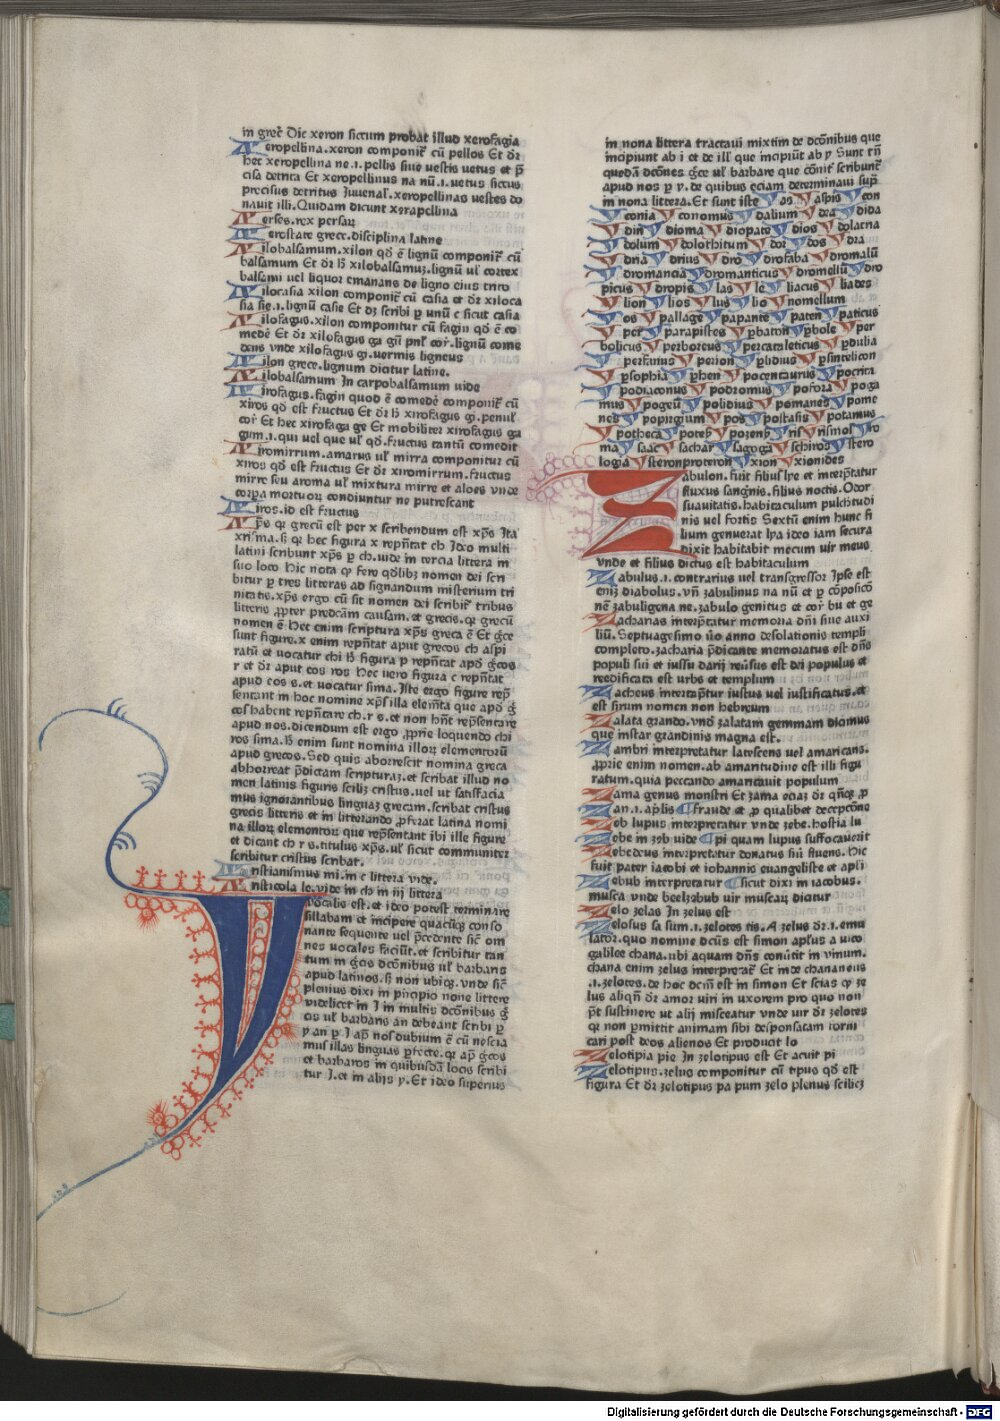 in grec̄ Dic xeron siccum probat illud xerofagia
Xeropellina.xeron componit̄ cū pellos Et dr̄
hec xeropellina ne.i.pellis siue vestis vetus et p̄
cisa detrita Et xeropellinus na nū.i.vetus siccus
precisus detritus Juvenal̄.xeropellinas vestes do
nauit illi.Quidam dicunt xerapellina
Xerses.rex persaꝝ
Xerostate grece.disciplina latine
Xilobalsamum.xilon qđ ē lignū componit̄ cū
balsamum Et dr̄ ħ xilobalsamuꝫ.lignū ul̄ cortex
balsami uel liquor emanans de ligno eius trito
Xilocasia xilon componit̄ cū casia et dr̄ xiloca
sia sie.i.lignū casie Et dꝫ scribi ꝑ unū c sicut casia
Xilofagus.xilon componitur cū fagin qđ ē co
medē Et dr̄ xilofagus ga gū pnl̄ cor̄.lignū come
dens vnde xilofagus gi.vermis ligneus
Xilon grece.lignum dicitur latine.
Xilobalsamum In carpobalsamum uide
Xirofagus.fagin quod ē comedē componit̄ cū
xiros qđ est fructus Et dr̄ ħ xirofagus gi.penul̄
cor̄ Et hec xirofaga ge Et mobiliter xirofagus ga
gum.i.qui uel que ul̄ qđ.fructus tantū comedit
Xiromirrum.amarus ul̄ mirra componitur cū
xiros qđ est fructus Et dr̄ xiromirrum.fructus
mirre seu aroma ul̄ mixtura mirre et aloes vnde
corpa mortuoꝝ condiuntur ne putrescant
Xiros.id est fructus
Xp̄s qꝛ grecū est per x scribendum est xp̄s Ita
xrisma.s̄ qꝛ hec figura x rep̄ntat ch Ideo multi
latini scribunt xp̄s ꝑ ch.vide in tercia littera in
suo loco Hic nota ꝙ fere qđlibꝫ nomen dei scri
bitur ꝑ tres litteras ad signandum misterium tri
nitatis.xp̄s ergo cū sit nomen dei scribit̄ tribus
litteris ꝓpter predcām causam.et grecis.qꝛ grecū
nomen ē Hec enim scriptura xp̄s greca ē Et ḡce
sunt figure.x enim rep̄ntat aput grecos ch aspi
ratū et vocatur chi ħ figura p rep̄ntat apđ ḡcos
r et dr̄ aput eos ros Hec vero figura c rep̄ntat
apud eos s.et vocatur sima.Iste ergo figure rep̄
sentant in hoc nomine xp̄s illa elem̄ta que apđ ḡ
cos habent rep̄ntare ch.r s.et non hn̄t rep̄sentare
apud nos.dicendum est ergo ꝓprie loquendo chi
ros sima.ħ enim sunt nomina illoꝝ elementorū
apud grecos.Sed quis aborrescit nomina greca
abhorreat p̄dictam scripturaꝫ.et scribat illud no
men latinis figuris scilꝫ cristus.uel ut satisfacia
mus ignorantibus linguaꝫ grecam.scribat cristus
grecis litteris et in litterando ꝓferat latina nomi
na illoꝝ elementoꝝ que rep̄sentant ibi ille figure
et dicant ch r s.titulus xp̄s.ul̄ sicut communiter
scribitur cristus scribat.
Xristianismus mi.in c littera vide.
Xristicola le.vide in ch in iij littera
Y vocalis est.et ideo potest terminare
sillabam et incipere quacūqꝫ conso
nante sequente uel p̄cedente sic̄ om
nes uocales faciūt.et scribitur tan
tum in ḡcis dcōnibus ul̄ barbaris
apud latinos.s̄ non ubiqꝫ.vnde sic̄
plenius dixi in p̄ncipio none littere
videlicet in I in multis dcōnibus ḡ
cis ul̄ barbaris an debeant scribi ꝑ
y an ꝑ I ap̄ nos dubium ē cū nescia
mus illas linguas p̄fecte.qꝛ ap̄ ḡcos
et barbaros in quibusdā locis scribi
tur I.et in alijs y.Et ideo superius
in nona littera tractaui mixtim de dcōnibus que
incipiunt ab i et de ill̄ que incipiūt ab y Sunt tn̄
quedā dcōnes ḡce ul̄ barbare que cōnit̄ scribunt̄
apud nos ꝑ y.de quibus eciam determinaui sup̄
in nona littera.Et sunt iste Yas Yaspis Ycon
Yconia Yconomus Ydalium Ydea Ydida
Ydin Ydioma Ydiopate Ydios Ydolatria
Ydolum Ydolothitum Ydor Ydos Ydra
Ydria Ydrius Ydro Ydrofaba Ydromalū
Ydromancia Ydromanticus Ydromellū Ydro
picus Ydropis Ylas Yle Yliacus Yliades
Ylion Ylios Ylus Ymo Ynomellum
Yos Ypallage Ypapante Ypaten Ypaticus
Yper Yparapistes Yp̄baton Yp̄bole Yper
bolicus Yperboreus Ypercataleticus Yp̄dulia
Yperfirius Yperion Yp̄lidius Yp̄sintelicon
Yp̄sophia Yp̄hen Ypocentaurus Ypocrita
Ypodiaconus Ypodromus Ypofora Ypoga
mus Ypogeū Ypolidius Ypomanes Ypome
nes Ypopirgium Ypos Ypostasis Ypotamus
Ypotheca Ypoteß Ypozenß Yris Yrismos Yro
ma Ysaac Ysachar Ysagoga Yschiros Ystero
logia Ysteronproteron Yxion Yxionides
Zabulon.fuit filius lye et interp̄tatur
fluxus sangnis.filius noctis.Odor
suauitatis.habitaculum pulchtudi
nis uel fortis Sextū enim hunc fi
lium genuerat lya ideo iam secura
dixit habitabit mecum uir meus
vnde et filius dictus est habitaculum
Zabulus.i.contrarius uel transgressor Ipse est
eniꝫ diabolus.vn̄ zabulinus na nū et ꝑ cōposicō
nē zabuligena ne.zabulo genitus et cor̄ bu et ge
Zachanas interp̄tatur memoria dn̄i siue auxi
liū.Septuagesimo v̄o anno desolationis templi
completo.zacharia p̄dicante memoratus est dn̄s
populi sui et iussu darij reūsus est dei populus et
reedificata est urbs et templum
Zacheus interp̄tur iustus uel iustificatus.et
est sirum nomen non hebreum
Zalata grando.vnđ zalatam gemmam dicimus
que instar grandinis magna est.
Zambri interpretatur latescens uel amaricans.
ꝓprie enim nomen.ab amaritudine est illi figu
ratum.quia peccando amaricauit populum
Zama genus monstri Et zama eciaꝫ dr̄ qn̄qꝫ ꝓ
Zan.i.apl̄is ¶ fraude et ꝓ qualibet decepcōne
Zeb lupus interpretatur vnde zebe.hostia lu
Zebe in zeb uide ¶ pi quam lupus suffocauerit
Zebedeus interpretatur donatus siū fluens.Hic
fuit pater iacobi et iohannis euangeliste et apl̄i
Zebub interpretatur ¶ sicut dixi in iacobus.
musca vnde beelzebub uir muscaꝝ dicitur
Zelo zelas In zelus est
Zelosus sa sum.i.zelotes tis.A zelus dr̄.i.emu
lator.quo nomine dcūs est simon apl̄us a uico
galilee chana.ubi aquam dn̄s conūtit in vinum.
chana enim zelus interpretat̄ Et inde chananeus
.i.zelotes.de hoc dcm̄ est in simon Et scias ꝙ ze
lus aliqn̄ dr̄ amor uiri in uxorem pro quo non
p̄t sustinere ut alij misceatur vnde uir dr̄ zelotes
qꝛ non ꝑmittit animam sibi desponsatam forni
cari post deos alienos Et producit lo
Zelotipia pie In zelotipus est Et acuit pi
Zelotipus.zelus componitur cū tipus qđ est
figura Et dr̄ zelotipus pa pum zelo plenus scilicꝫ
Digitalisierung gefördert durch die Deutsche Forschungsgemeinschaft - DFG